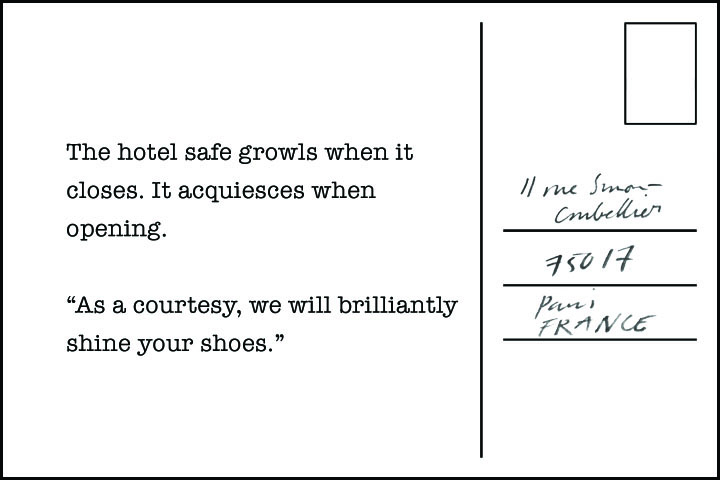 The hotel safe growls when it
closes. It acquiesces when
opening.
“As a courtesy, we will brilliantly
shine your shoes.”
11 rue
75017
Paris
FRANCE